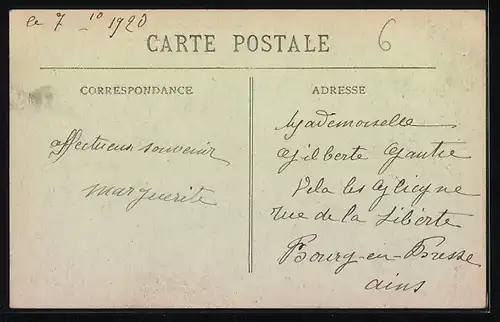 le 7 10 1920
CARTE POSTALE
6
CORRESPONDANCE
affectueux souvenir
marguerite
ADRESSE
Mademoiselle
Gilberte Gautie
Vila les Glicyne
rue de la Liberte
Bourg-en-Bresse
ains